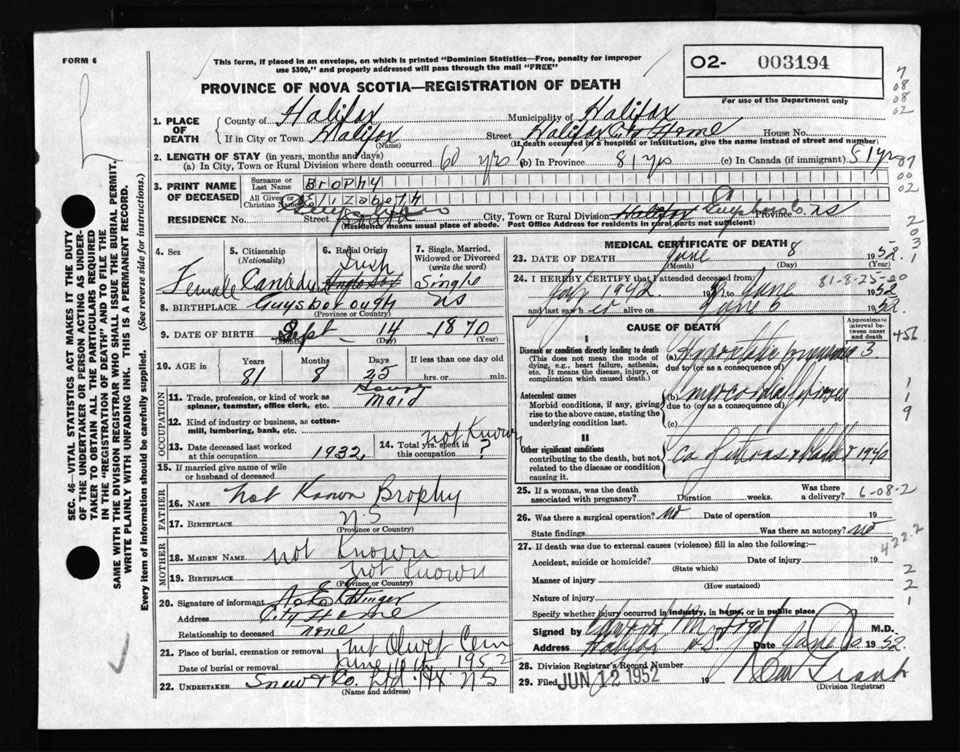 FORM 6
This form, if placed in an envelope, on which is printed "Dominion Statistics—Free, penalty for improper
use $300," and properly addressed will pass through the mail "FREE"
O2- 003194
For use of the Department only
PROVINCE OF NOVA SCOTIA—REGISTRATION OF DEATH
1. PLACE OF DEATH
County of Halifax Municipality of Halifax
If in City or Town Halifax Street Halifax City Home House No.
(Name) (If death occurred in a hospital or institution, give its name instead of street and number)
2. LENGTH OF STAY (in years, months and days)
(a) In City, Town or Rural Division where death occurred 60 yrs. (b) In Province 81 yrs (c) In Canada (if immigrant) 81 yrs
3. PRINT NAME OF DECEASED
Surname or Last Name Brophy
All Given or Christian Names Elizabeth
RESIDENCE No. Street City, Town or Rural Division Halifax Guysboro Co. Province NS
(Residence means usual place of abode. Post Office Address for residents in rural parts not sufficient)
4. Sex Female
5. Citizenship (Nationality) Canada
6. Racial Origin Irish
7. Single, Married, Widowed or Divorced (write the word) Single
8. BIRTHPLACE Guysborough NS
(Province or Country)
9. DATE OF BIRTH Sept 14 1870
(Month) (Day) (Year)
10. AGE in Years 81 Months 8 Days 25 If less than one day old hrs. or min.
OCCUPATION
11. Trade, profession, or kind of work as spinner, teamster, office clerk, etc. House Maid
12. Kind of industry or business, as cotton-mill, lumbering, bank, etc.
13. Date deceased last worked at this occupation 1932
14. Total yrs. spent in this occupation not Known ?
15. If married give name of wife or husband of deceased
FATHER
16. NAME not Known Brophy
17. BIRTHPLACE N.S
(Province or Country)
MOTHER
18. MAIDEN NAME not Known
19. BIRTHPLACE not Known
(Province or Country)
20. Signature of informant
Address City Home
Relationship to deceased none
21. Place of burial, cremation or removal Mt Olivet Cem
Date of burial or removal June 10th, 1952
22. UNDERTAKER Snow & Co. Ltd. Hx. NS
(Name and address)
MEDICAL CERTIFICATE OF DEATH
23. DATE OF DEATH June 8 1952
(Month) (Day) (Year)
81-8-25-00
24. I HEREBY CERTIFY that I attended deceased
from July 1942 to June 1952
and last saw her alive on June 1952
CAUSE OF DEATH
Approximate interval between onset and death
I
Disease or condition directly leading to death
(This does not mean the mode of dying, e.g., heart failure, asthenia, etc. It means the disease, injury, or complication which caused death.)
(a) Hypostatic pneumonia 3
due to (or as a consequence of)
Antecedent causes
Morbid conditions, if any, giving rise to the above cause, stating the underlying condition last.
(b) myocardial
due to (or as a consequence of)
(c)
II
Other significant conditions
contributing to the death, but not related to the disease or condition causing it.
Ca of uterus 1940
25. If a woman, was the death associated with pregnancy? Duration weeks. Was there a delivery?
6-08-2
26. Was there a surgical operation? no Date of operation 19
State findings Was there an autopsy? no
422.2
27. If death was due to external causes (violence) fill in also the following:—
Accident, suicide or homicide? Date of injury 19
(State which)
Manner of injury
(How sustained)
Nature of injury
Specify whether injury occurred in industry, in home, or in public place
Signed by M.D.
Address Halifax N.S. Date June 1952
28. Division Registrar's Record Number
29. Filed JUN 12 1952 19
(Division Registrar)
SEC. 46—VITAL STATISTICS ACT MAKES IT THE DUTY
OF THE UNDERTAKER OR PERSON ACTING AS UNDER-
TAKER TO OBTAIN ALL THE PARTICULARS REQUIRED
IN THE "REGISTRATION OF DEATH" AND TO FILE THE
SAME WITH THE DIVISION REGISTRAR WHO SHALL ISSUE THE BURIAL PERMIT.
WRITE PLAINLY WITH UNFADING INK. THIS IS A PERMANENT RECORD.
Every item of information should be carefully supplied. (See reverse side for instructions.)